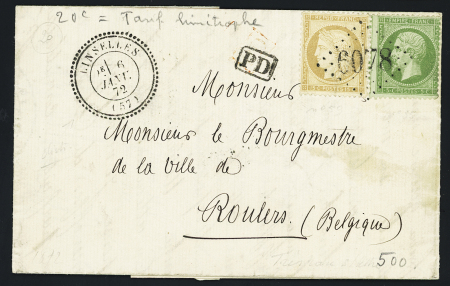 20c = Tarif limitrophe
LINSELLES
6
JANV.
72
(57)
PD
6078
EMPIRE FRANC
Monsieur
Monsieur le Bourgmestre
de la ville de
Roulers. (Belgique)
500